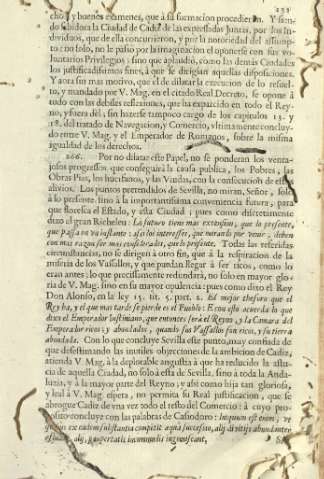 231
cho, y buenos examenes, que à su formacion procedieron. Y sien-
do sabidora la Ciudad de Cadiz de las expressadas Juntas, por los In-
dividuos, que de ella concurrieron, y por la notoriedad del assump-
to: no solo, no le passò por la imaginacion el oponerse con sus vo-
luntarios Privilegios; sino que aplaudiò, como las demàs Ciudades
los justificadissimos fines, à que se dirigian aquellas disposiciones.
Y aora sin mas motivo, que el de dilatar la execucion de lo resuel-
to, y mandado por V. Mag. en el citado Real Decreto, se opone à
todo con las debiles reflexiones, que ha esparcido en todo el Rey-
no, y fuera dèl, sin hazerse tampoco cargo de los capitulos 13. y
18. del tratado de Navegacion, y Comercio, vltimamente concluy-
do entre V. Mag. y el Emperador de Romanos, sobre la misma
igualdad de los derechos.
266. Por no dilatar este Papel, no se ponderan los venta-
josos progressos que conseguirà la causa publica, los Pobres, las
Obras Pias, los huerfanos, y las Viudas, con la consecucion de estos
alivios. Los puntos pretendidos de Sevilla, no miran, Señor, solo
à lo presente, sino à la importantissima conveniencia futura, para
que florezca el Estado, y esta Ciudad; pues como discretamente
dixo el gran Richelieu: La futura tiene mas extension, que la presente,
que passa en vn instante: assi los interesses, que mirar à por venir, deben
con mas razon ser mas considerados, que lo presente. Todas las referidas
circunstancias, no se dirigen à otro fin, que à la respiracion de la
miseria de los Vassallos, y que puedan llegar à ser ricos, como lo
eran antes: lo que precissamente redundarà, no solo en mayor glo-
ria de V. Mag. sino en su mayor opulencia: pues como dixo el Rey
Don Alonso, en la ley 15. tit. 5. part. 2. El mejor thesoro que el
Rey ha, y el que mas tarde se pierde es el Pueblo: E con esto acuerda lo que
dixo el Emperador Iustiniano, que entonces serà el Reyno, y la Camara del
Emperador ricos, y abondados, quando sus Vassallos son ricos, y su tierra
abondada. Con lo que concluye Sevilla este punto, muy confiada de
que desestimando las inutiles objecciones de la ambicion de Cadiz,
atienda V. Mag. à la deplorable angustia à que ha reducido la astu-
cia de aquella Ciudad, no solo à esta de Sevilla, sino à toda la Anda-
luzia, y à la mayor parte del Reyno; y assi como hija tan gloriosa,
y leal à V. Mag. espera, no permita su Real justificacion, que se
abrogue Cadiz de vna vez todo el resto del Comercio: à cuyo pro-
posito concluye con las palabras de Casiodoro: